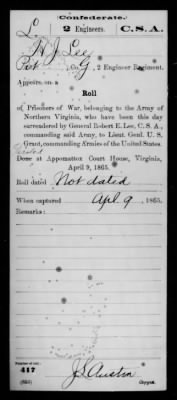 Confederate.
L. 2 Engineers. C.S.A.
W J Lee
Pvt, Co. G, 2 Engineer Regiment.
Appears on a
Roll
of Prisoners of War, belonging to the Army of
Northern Virginia, who have been this day
surrendered by General Robert E. Lee, C. S. A.,
commanding said Army, to Lieut. Genl. U. S.
Grant, commanding Armies of the United States.
Done at Appomattox Court House, Virginia,
April 9, 1865.
Roll dated Not dated
When captured Apl 9, 1865.
Remarks:
Number of roll:
417
J S Austin
Copyist.